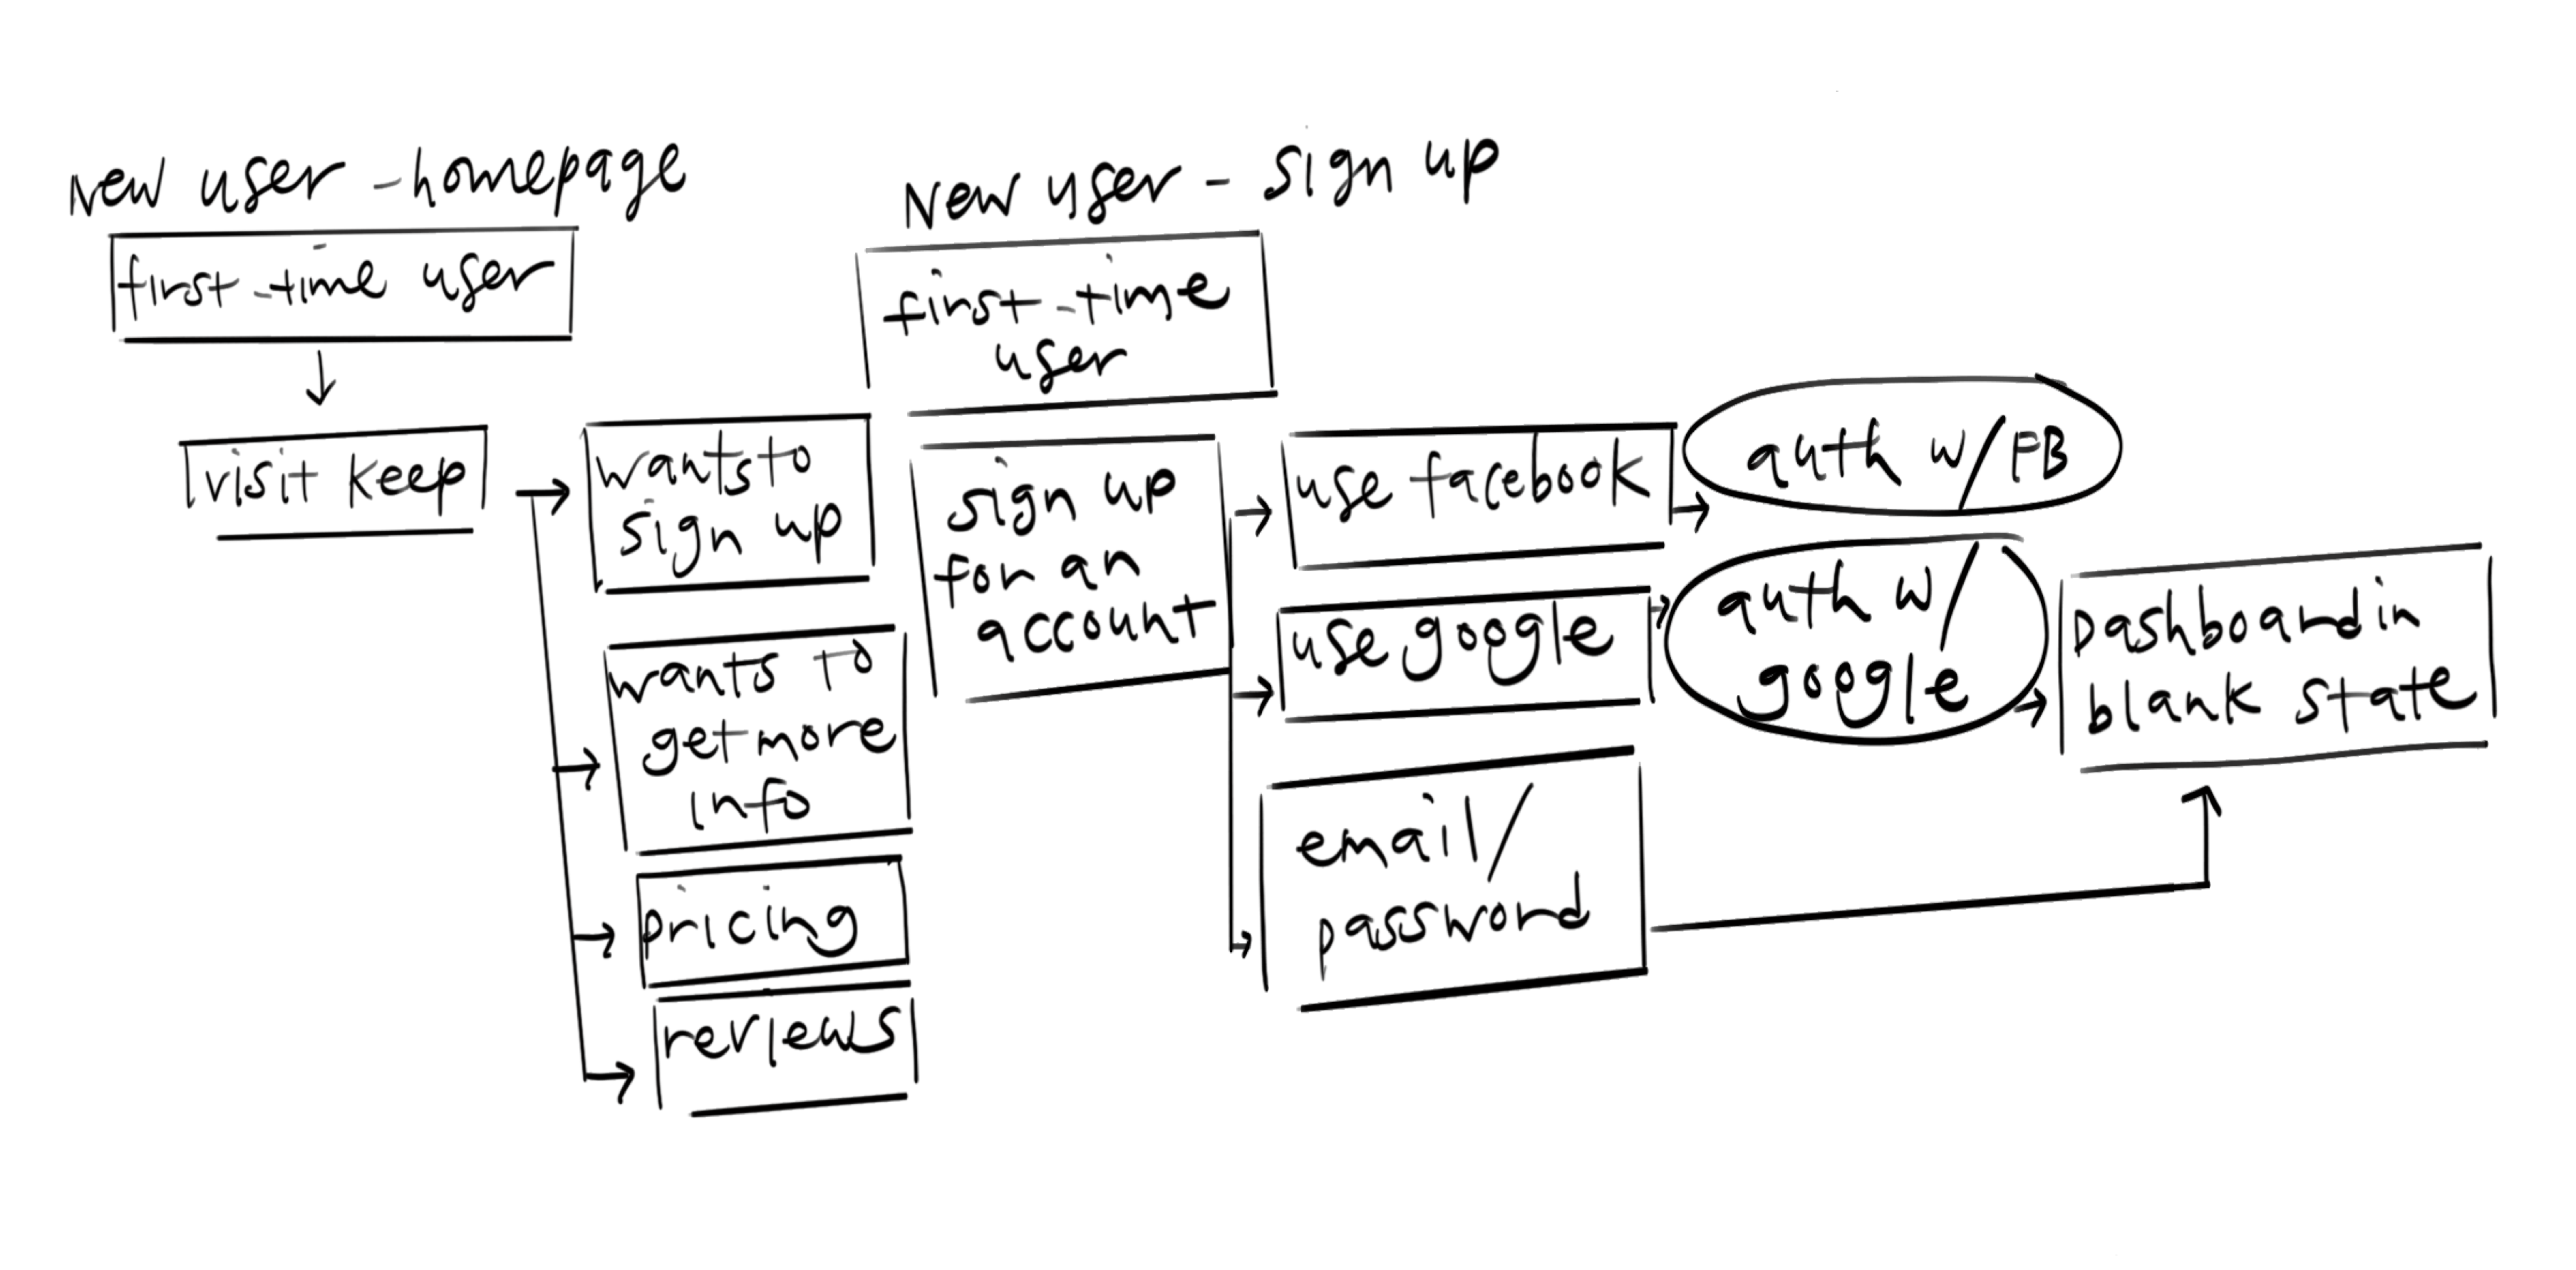 New user - homepage
first-time user
visit keep
wants to
sign up
wants to
get more
info
pricing
reviews
New user - sign up
first-time
user
sign up
for an
account
use facebook
auth w/FB
use google
auth w/
google
email/
password
Dashboard in
blank state